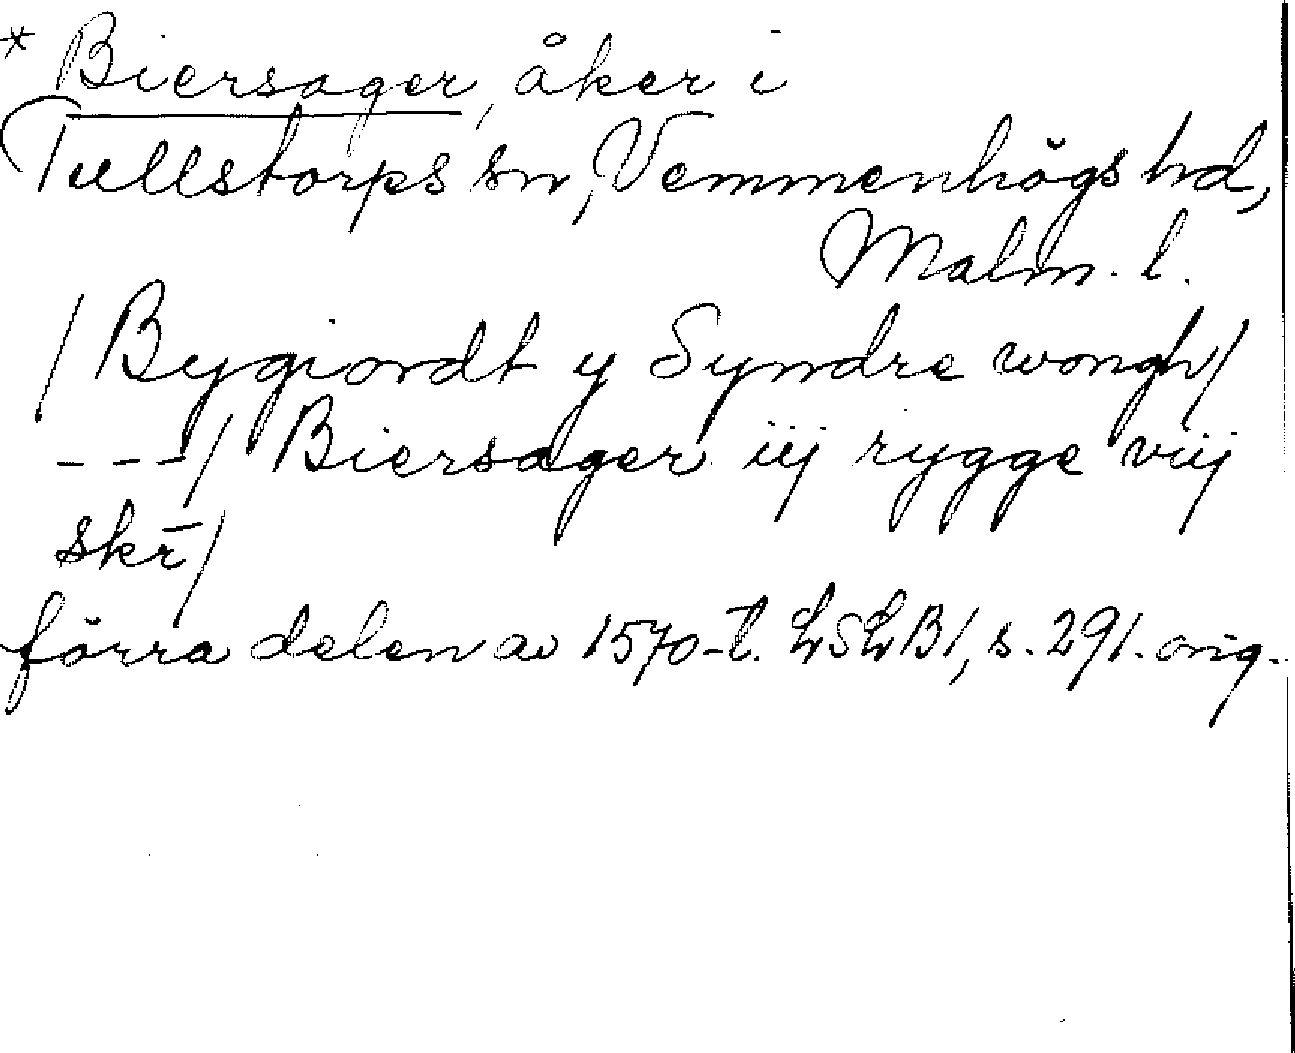 * Biersager, åker i
Tullstorps sn, Vemmenhögs hd,
Malm. l.
/ Bygiordt y Syndre wongh/
- - -/ Biersager iij rygge viij
skr̄/
förra delen av 1570-t. LSLB1, s. 291. orig.